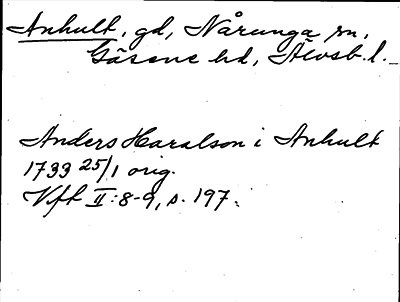 Anhult, gd, Nårunga sn,
Gäsene hd, Älvsb. l.
Anders Haralson i Anhult
1733 25/1 orig.
Vft II:8-9, s. 197.